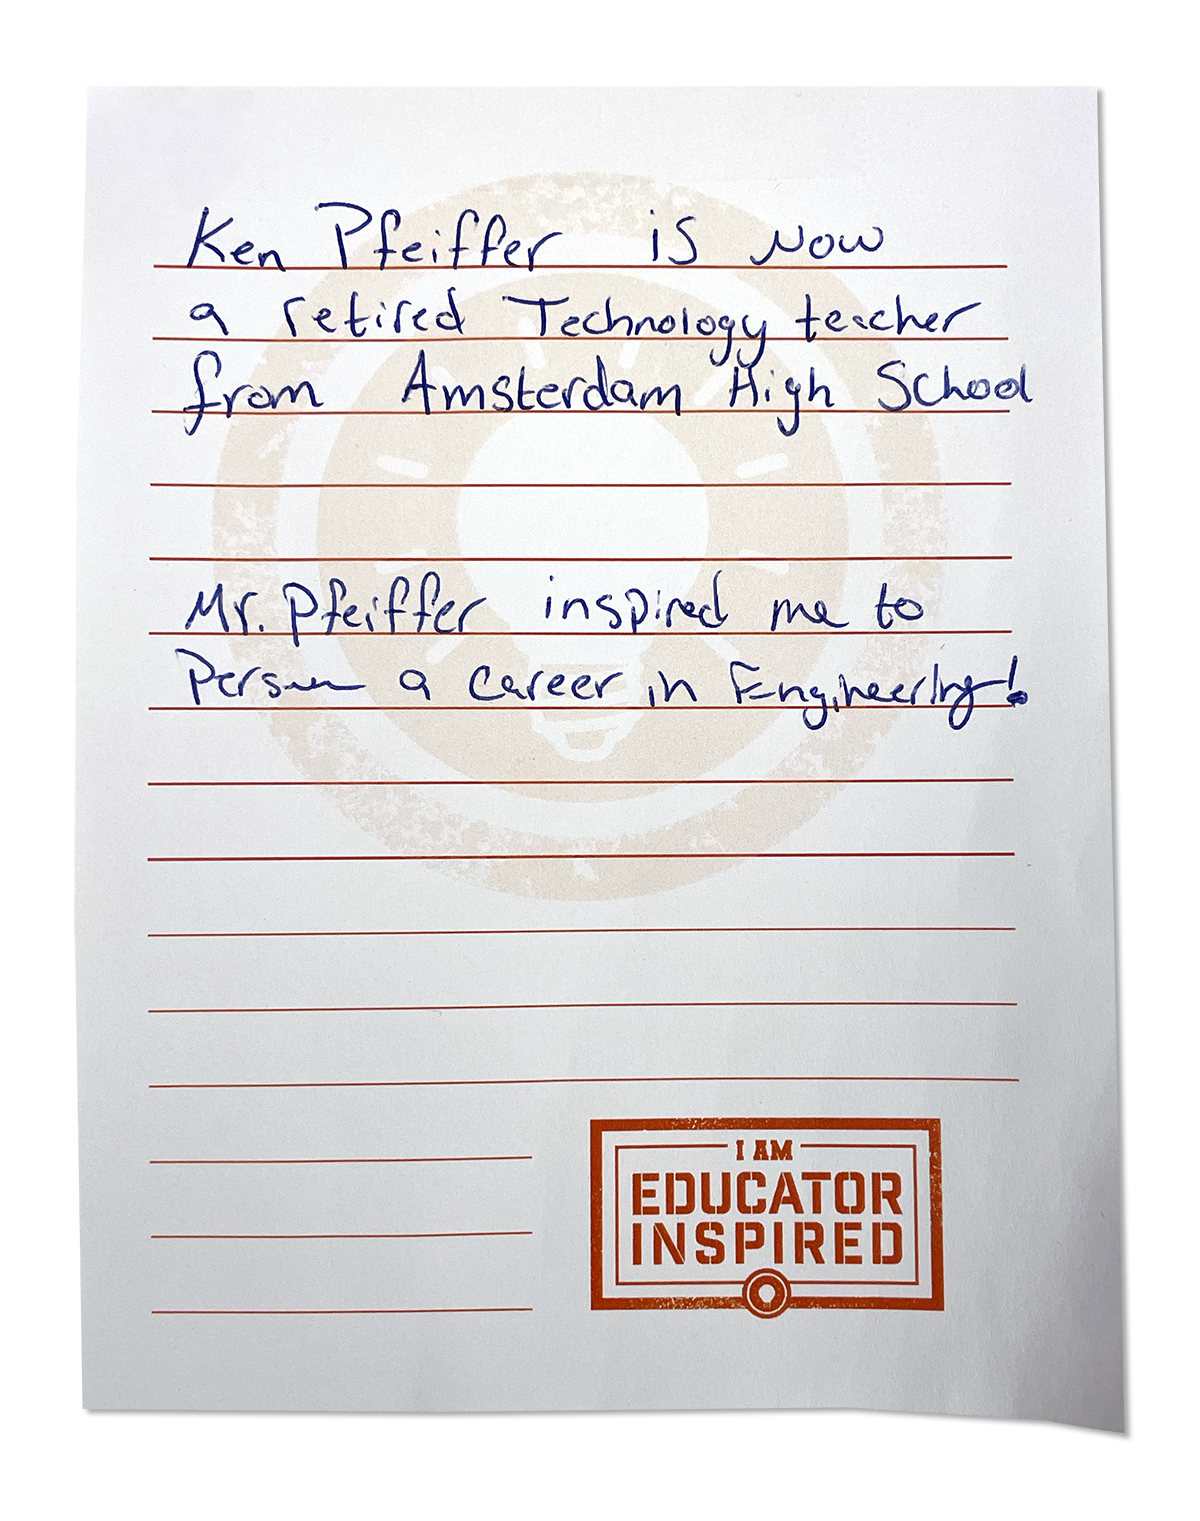 Ken Pfeiffer is now
a retired Technology teacher
from Amsterdam High School
Mr. Pfeiffer inspired me to
a career in Engineering!
I AM
EDUCATOR
INSPIRED